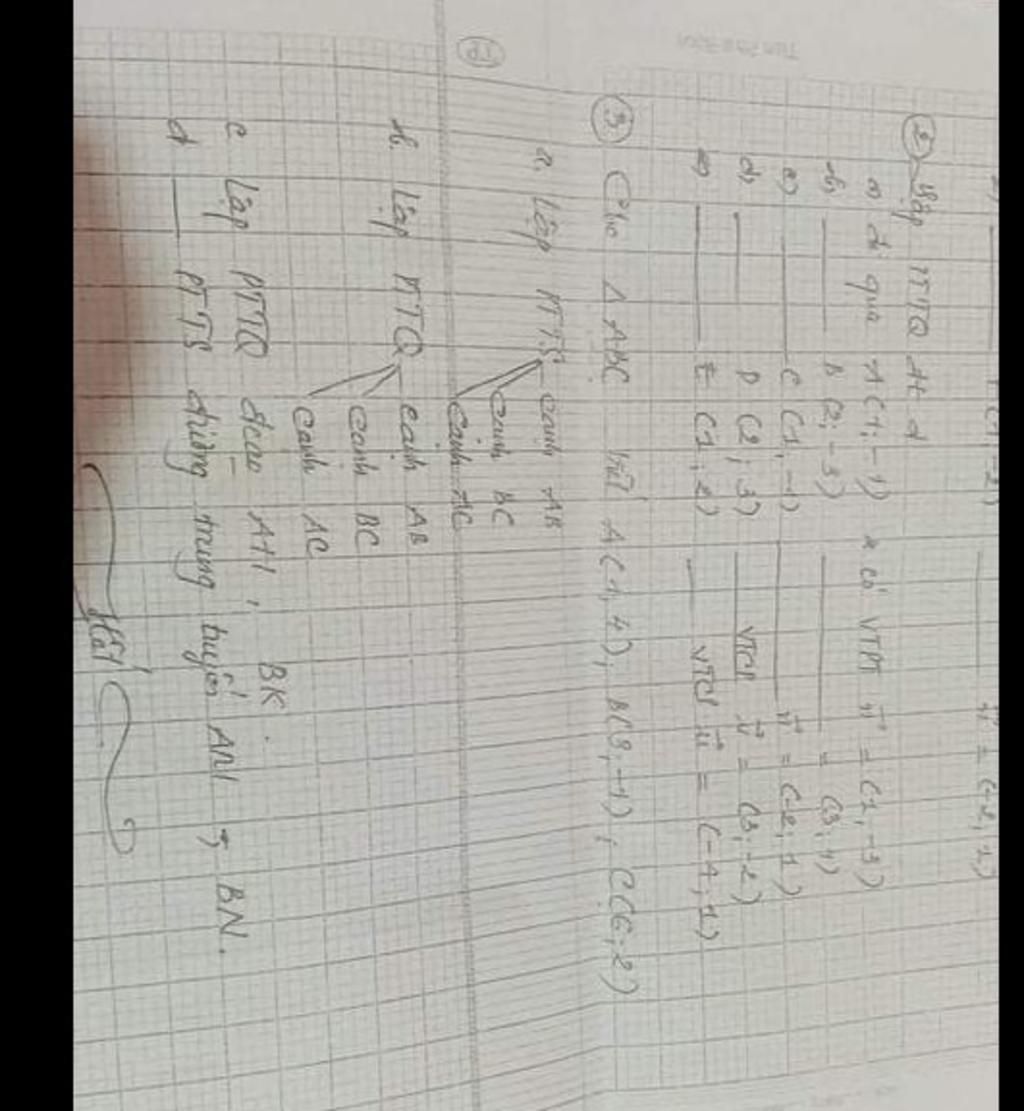 ② Lập PTTQ đt d
a) đi qua A (1; -1) & có VTPT n⃗ = (1; -3)
b, ——— B (2; -3) ——— = (3; 1)
c) ——— C (1; -1) ——— n⃗ = (-2; 1)
d, ——— D (2; 3) ——— VTCP u⃗ = (3; -2)
e) ——— E (1; 2) ——— VTCP u⃗ = (-4; 1)
③ Cho Δ ABC biết A(1; 4), B(3; -1), C(6; 2)
a, Lập PTTS cạnh AB
cạnh BC
cạnh AC
b. Lập PTTQ cạnh AB
cạnh BC
cạnh AC
c Lập PTTQ đcao AH, BK.
d ——— PTTS đường trung tuyến AM, BN.
Hết